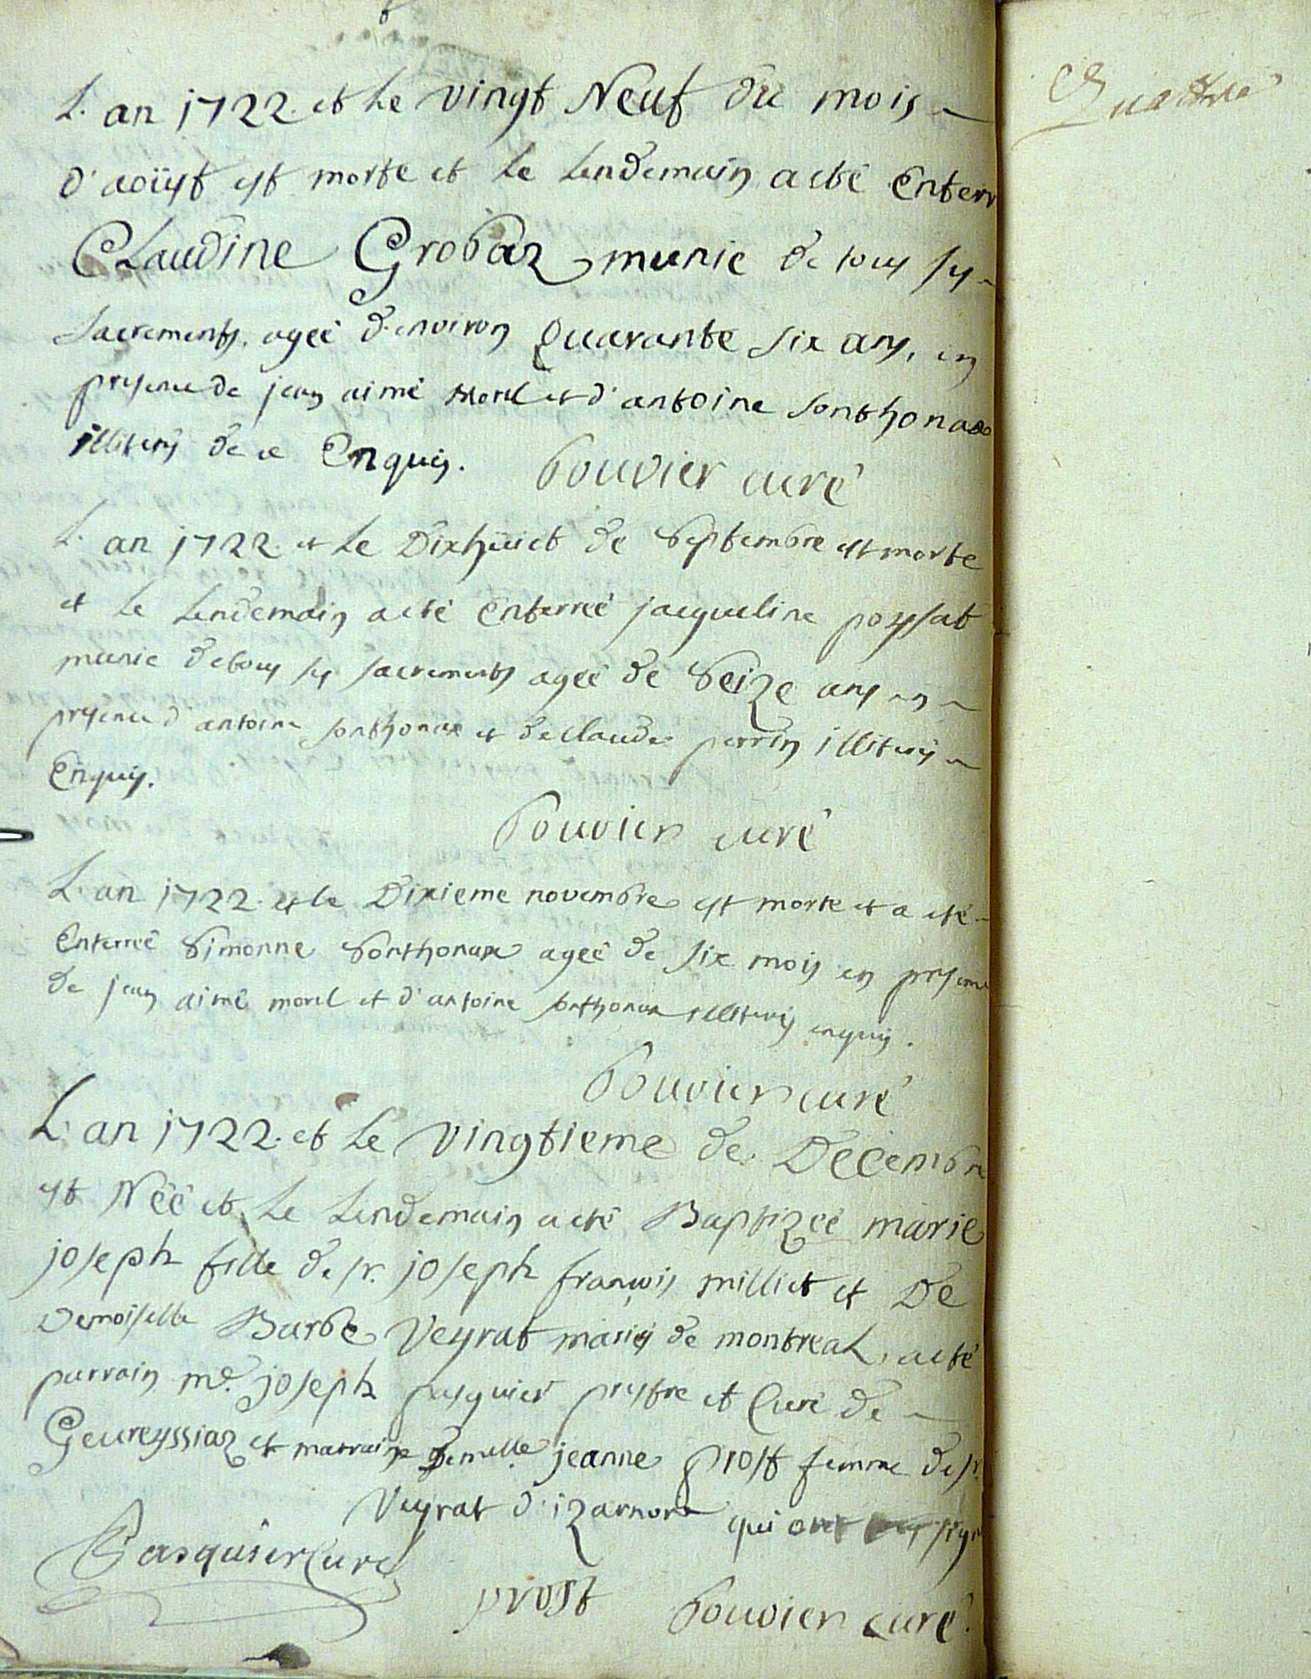 L'an 1722 et le vingt Neuf du mois
d'aoüst est morte et le lendemain a eté Enterr
Claudine Grobaz munie de tous ses
Sacrements, ageé d'environ Quarante six ans, en
presence de jean aimé Morel et d'antoine Sonthonax
illiterés de ce Enquis. Bouvier curé
L'an 1722 et le Dixhuict de Septembre est morte
et le lendemain a eté Enterreé jacqueline poysat
munie de tous ses sacrements ageé de Seize ans en
presence d'antoine sonthonax et de claude perrin illiterés
Enquis.
Bouvier curé
L'an 1722 et le Dixieme novembre est morte et a eté
Enterreé Simonne Sonthonax ageé de six mois en presence
de jean aimé morel et d'antoine sonthonax illiterés enquis.
Bouvier curé
L'an 1722 et le vingtieme de Décembre
est Néé et le lendemain a eté Baptizéé marie
joseph fille de sr. joseph françois milliet et De
Demoiselle Barbe Veyrat mariés de montreal, a eté
parrain me. joseph pasquier prestre et Curé de
Geureyssiaz et marraine demelle jeanne prost femme de sr.
Veyrat d'izarnore qui ont signé
Pasquier Curé
prost Bouvier curé